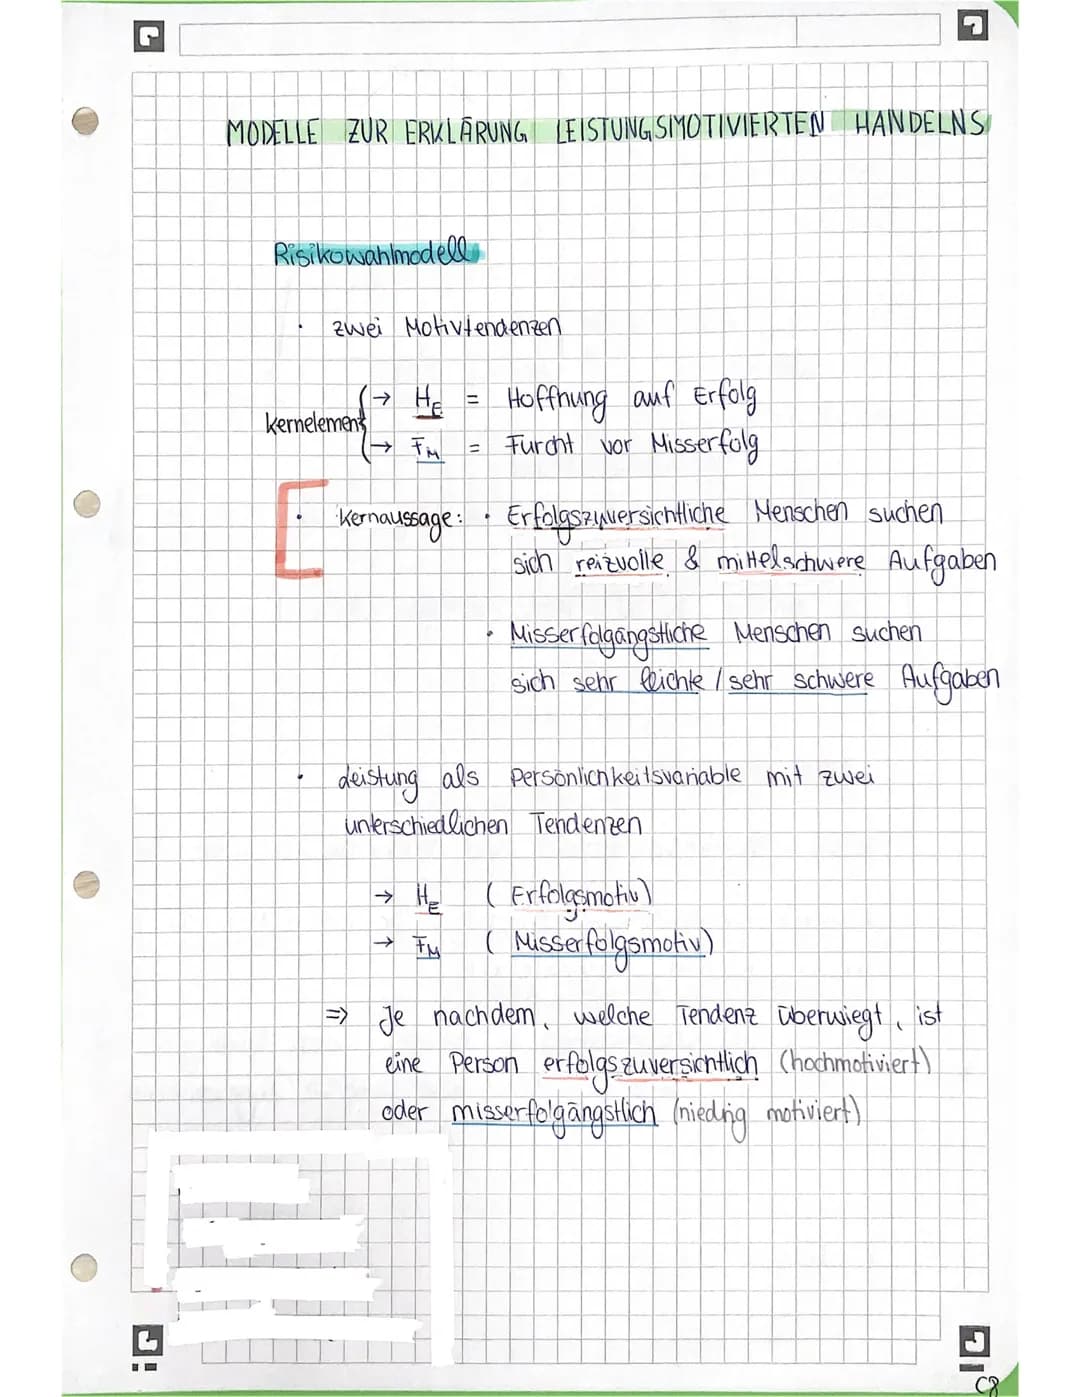 MODELLE ZUR ERKLÄRUNG LEISTUNGSMOTIVIERTEN HANDELNS
Risikowahlmodell
• zwei Motivtendenzen
→ HE = Hoffnung auf Erfolg
Kernelement
→ FM = Furcht vor Misserfolg
• Kernaussage: • Erfolgszuversichtliche Menschen suchen
sich reizvolle & mittelschwere Aufgaben
• Misserfolgängstliche Menschen suchen
sich sehr leichte / sehr schwere Aufgaben
• Leistung als Persönlichkeitsvariable mit zwei
unterschiedlichen Tendenzen
→ HE (Erfolgsmotiv)
→ FM (Misserfolgsmotiv)
⇒ Je nachdem, welche Tendenz überwiegt, ist
eine Person erfolgszuversichtlich (hochmotiviert)
oder misserfolgängstlich (niedrig motiviert)